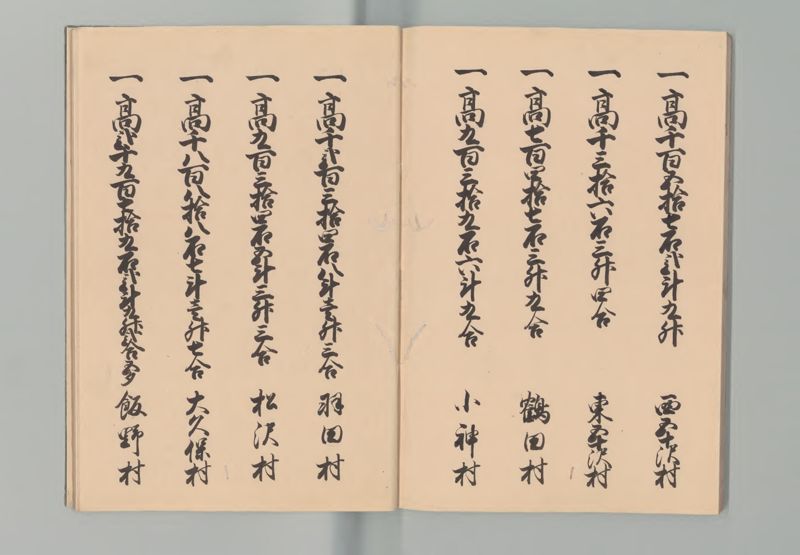 一高千百五拾七石弐斗九升 西 村
一高千三拾六石三升四合 東 村
一高七百四拾七石三升九合 鶴田村
一高九百三拾九石六斗九合 小神村
一高千弐百三拾四石八斗壱升三合 羽田村
一高九百三拾四石五斗三升三合 松沢村
一高千八百八拾八石七斗壱升七合 大久保村
一高弐千九百 拾九石弐斗 飯野村